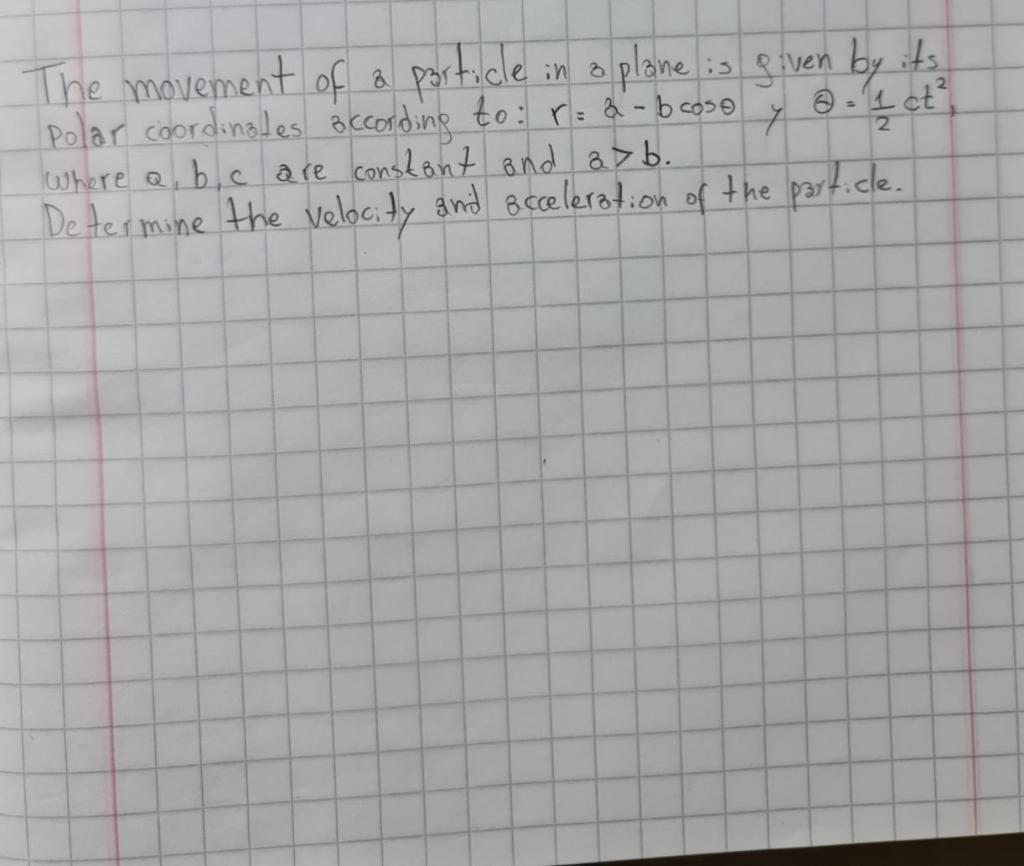 The movement of a particle in a plane is given by its
polar coordinates according to: r = a - b cosθ y θ = 1/2 ct²,
where a, b, c are constant and a > b.
Determine the velocity and acceleration of the particle.